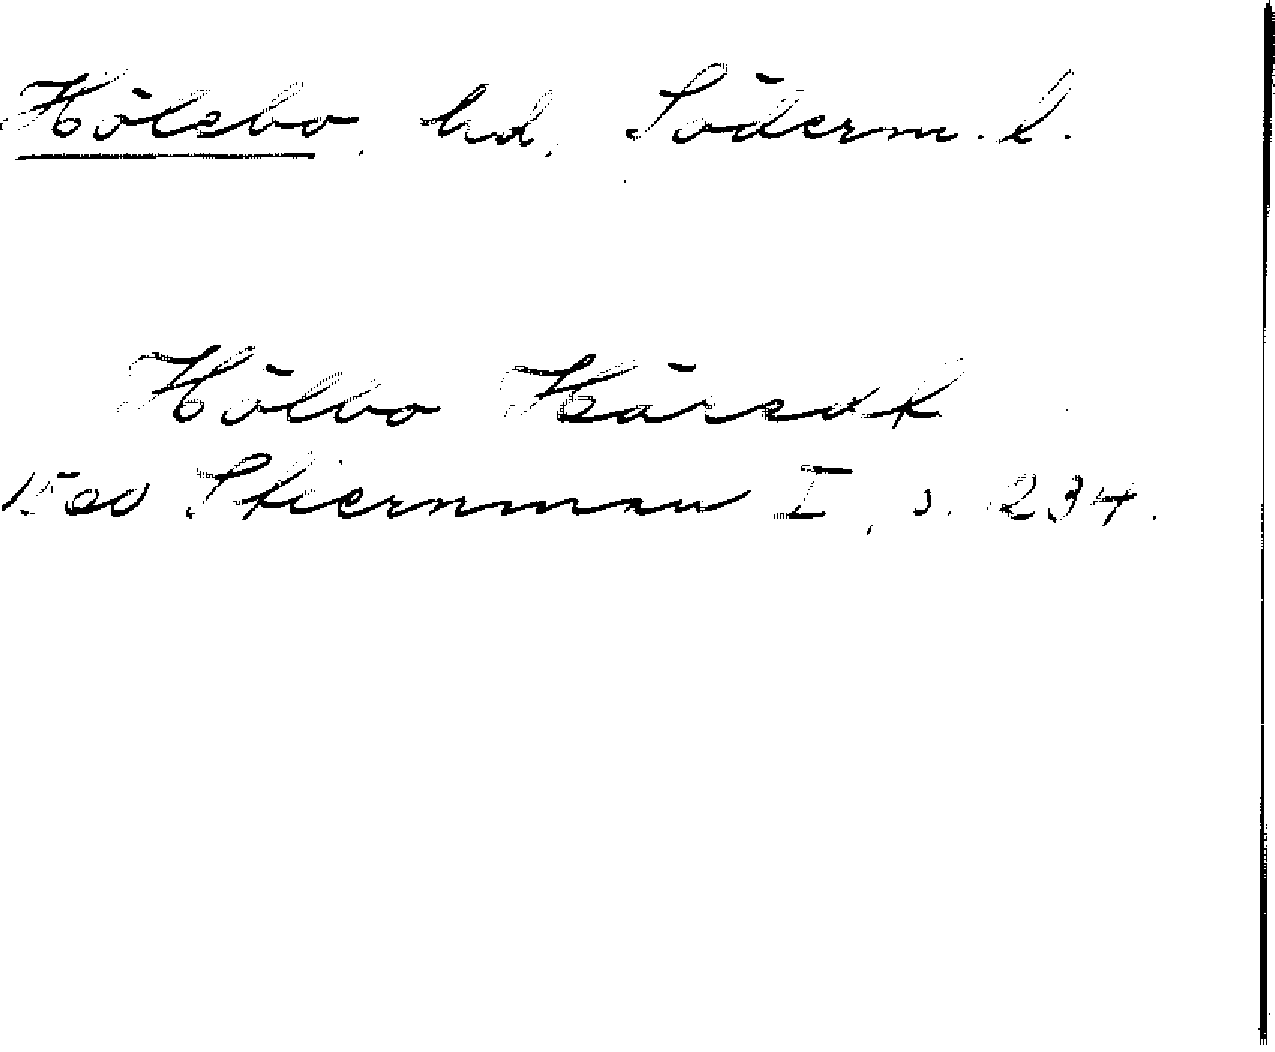 Hölebo, hd, Söderm. l.
Hölbo Häradt
1500 Stiernman I, s. 234.